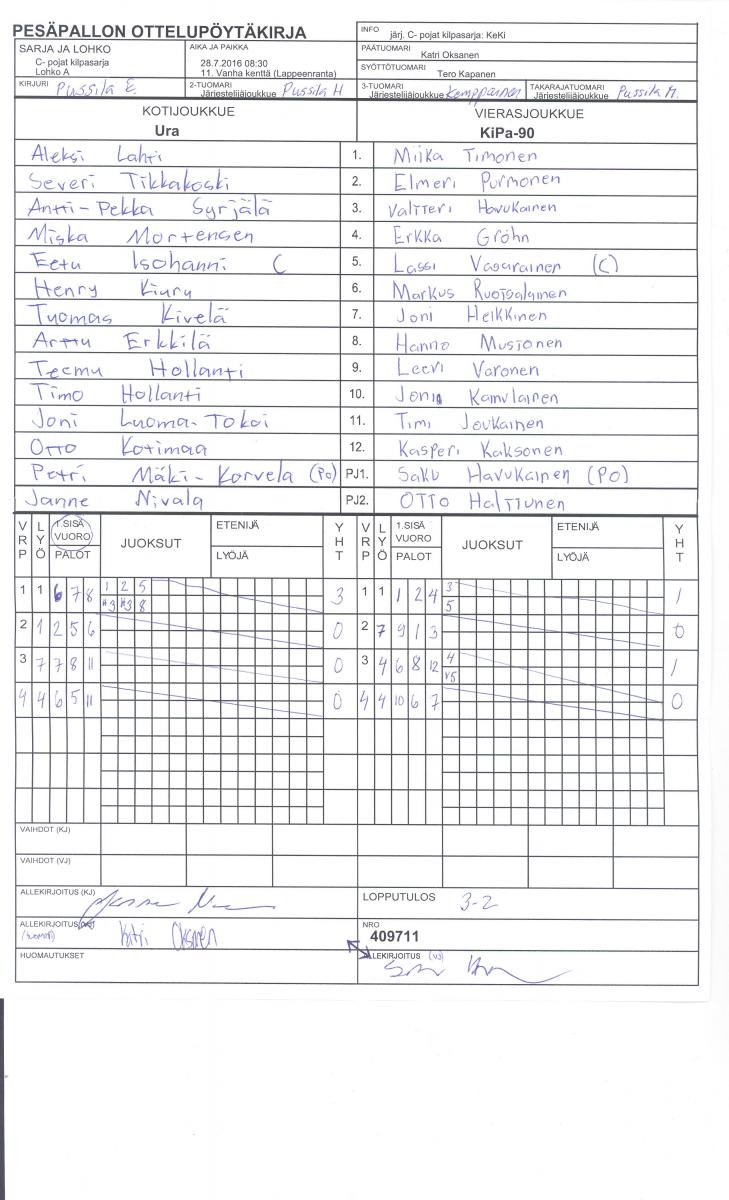 PESÄPALLON OTTELUPÖYTÄKIRJA
INFO järj. C- pojat kilpasarja: KeKi
SARJA JA LOHKO
C- pojat kilpasarja
Lohko A
AIKA JA PAIKKA
28.7.2016 08:30
11. Vanha kenttä (Lappeenranta)
PÄÄTUOMARI
Katri Oksanen
SYÖTTÖTUOMARI
Tero Kapanen
KIRJURI Pussila E.
2-TUOMARI Järjestelijäjoukkue Pussila H
3-TUOMARI Järjestelijäjoukkue Kemppainen
TAKARAJATUOMARI Järjestelijäjoukkue Pussila M.
KOTIJOUKKUE VIERASJOUKKUE
Ura KiPa-90
Aleksi Lahti 1. Miika Timonen
Severi Tikkakoski 2. Elmeri Purmonen
Antti-Pekka Syrjälä 3. Valtteri Havukainen
Miska Mortensen 4. Erkka Gröhn
Eetu Isohanni C 5. Lassi Vasarainen (C)
Henry Kiuru 6. Markus Ruotsalainen
Tuomas Kivelä 7. Joni Heikkinen
Arttu Erkkilä 8. Hanno Mustonen
Teemu Hollanti 9. Leevi Varonen
Timo Hollanti 10. Joni Kamulainen
Joni Luoma-Tokoi 11. Timi Joukainen
Otto Kotimaa 12. Kasperi Kaksonen
Petri Mäki-Korvela (PO) PJ1. Saku Havukainen (PO)
Janne Nivala PJ2. OTTO Halttunen
VRP LYÖ 1.SISÄ VUORO PALOT JUOKSUT ETENIJÄ LYÖJÄ YHT VRP LYÖ 1.SISÄ VUORO PALOT JUOKSUT ETENIJÄ LYÖJÄ YHT
1 1 6 7 8 1 2 5 3 1 1 1 2 4 3 1
#3 #3 8 5
2 1 2 5 6 0 2 7 9 1 3 0
3 7 7 8 11 0 3 4 6 8 12 4 1
V5
4 4 6 5 11 0 4 4 10 6 7 0
VAIHDOT (KJ)
VAIHDOT (VJ)
ALLEKIRJOITUS (KJ)
LOPPUTULOS 3-2
ALLEKIRJOITUS
(tuomari) Katri Oksanen
NRO
409711
HUOMAUTUKSET
ALLEKIRJOITUS (VJ)